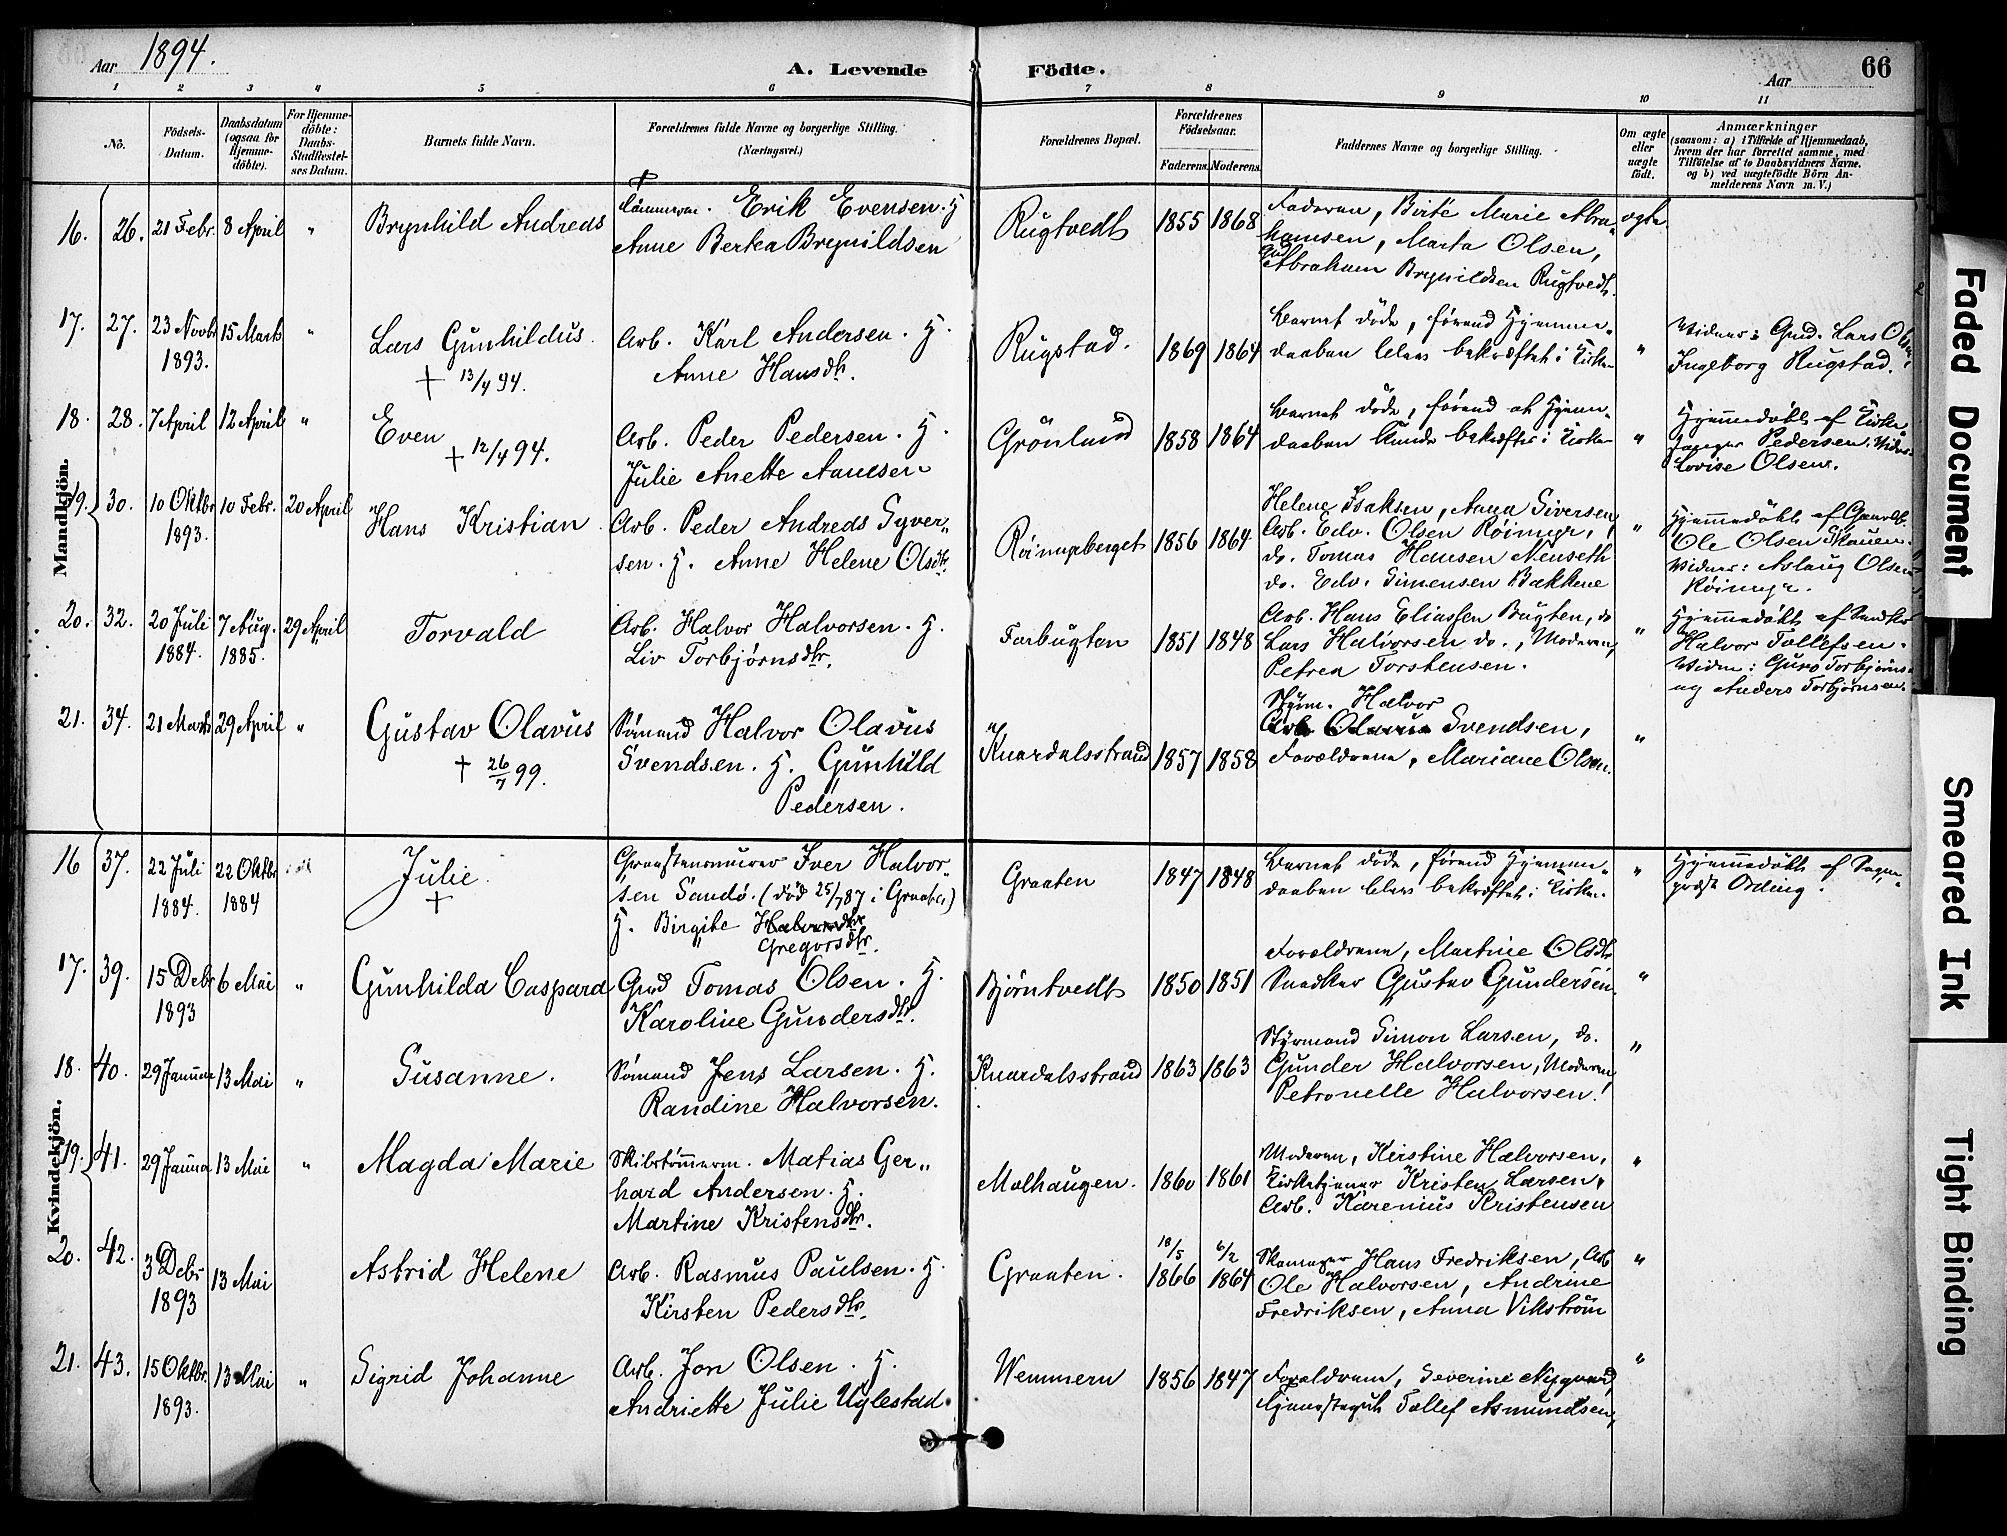 Aar 1894.
A. Levende Födte.
Aar
66
1 2 3 4 5 6 7 8 9 10 11
No.
Födsels-Datum.
Daabsdatum (ogsaa for Hjemme-döbte).
For Hjemme-döbte: Daabs-Stadfæstel-ses Datum.
Barnets fulde Navn.
Forældrenes fulde Navne og borgerlige Stilling. (Næringsvei.)
Forældrenes Bopæl.
Forældrenes Födselsaar.
Faderens. Moderens.
Faddernes Navne og borgerlige Stilling.
Om ægte eller uægte födt.
Anmærkninger
(saasom: a) i Tilfælde af Hjemmedaab,
hvem der har forrettet samme, med
Tilföielse af to Daabsvidners Navne.
og b) ved uægtefödte Börn An-
melderens Navn m. V.)
Mandkjön.
16. 26. 21 Febr. 8 April " Brynhild Andreas
Erik Evensen. H
Anne Bertea Brynildsen
Rugtvedt 1855 1868
Faderen, Birte Marie Abra-
hamsen, Marta Olsen,
Gud Abraham Brynildsen Rugtvedt.
ægte
17. 27. 23 Novbr 1893. 15 Marts " Lars Gunhildus.
+ 13/4 94.
Arb. Karl Andersen. H.
Anne Hansdtr.
Rugstad. 1869 1864
Barnet døde, førend Hjemme-
daaben blev bekræftet i Kirke
"
Vidner: Gmd. Lars Olsen,
Ingeborg Rugstad.
18. 28. 7 April 12 April " Even
+ 12/4 94.
Arb. Peder Pedersen. H.
Julie Anette Aamsen
Grönlund 1858 1864
Barnet døde, førend at Hjem-
daaben kunde bekræftes i Kirke
"
Hjemmedøbt af Kirke
sanger Pedersen. Vidn.
Lovise Olsen.
19. 30. 10 Oktbr 1893. 10 Febr. 20 April Hans Kristian
Arb. Peder Andreas Syver-
sen. H. Anne Helene Olsdtr.
Røimyrberget 1856 1864
Helene Isaksen, Anna Siversen
Arb. Edv. Olsen Røimyr,
do. Tomas Hansen Menseth
do. Edv. Simensen Bakkene
"
Hjemmedøbt af Gaardb.
Ole Olsen Skauen.
Vidner: Aslaug Olsen
Røimyr.
20. 32. 20 Juli 1884. 7 Aug. 1885. 29 April Torvald
Arb. Halvor Halvorsen. H.
Liv Torbjørnsdtr.
Farbugten 1851 1848
Arb. Hans Eliassen Bugten, do
Lars Halvorsen do., Moderen,
Petrea Torstensen.
"
Hjemmedøbt af Snedker
Halvor Tollefsen.
Vidn: Guro Torbjørns.
og Anders Torbjørnsen.
21. 34. 21 Marts 29 April " Gustav Olavus
+ 26/7 99.
Sømand Halvor Olavus
Svendsen. H. Gunhild
Pedersen.
Knardalsstrand 1857 1858
Styrm. Halvor
Arb Olavus Svendsen,
Forældrene, Mariane Olsen.
"
Kvindekjön.
16 37. 22 Juli 1884. 22 Oktbr 1884 Julie.
+
Graastensmurer Iver Halvor-
sen Sandö. (död 25/7 87 i Graaten)
H. Birgite Halvorsdtr
Gregorsdtr.
Graaten 1847 1848
Barnet døde, førend Hjemme-
daaben blev bekræftet i Kirken.
"
Hjemmedøbt af Sogne-
præst Ording.
17. 39. 15 Debr 1893 6 Mai " Gunhilda Caspara
Gmd Tomas Olsen. H.
Karoline Gundersdtr.
Bjørntvedt 1850 1851
Forældrene, Martine Olsdtr
Snedker Gustav Gundersen.
"
18. 40. 29 Januar 13 Mai " Susanne.
Sømand Jens Larsen. H.
Randine Halvorsen.
Knardalsstrand 1863 1863
Styrmand Simon Larsen, do.
Gunder Halvorsen, Moderen,
Petronelle Halvorsen.
"
19. 41. 29 Janua 13 Mai " Magda Marie
Skibstømmerm. Matias Ger-
hard Andersen. H.
Martine Kristensdtr.
Malhaugen. 1860 1861
Moderen, Kirstine Halvorsen,
Kirketjener Kristen Larsen,
Arb. Karenius Kristensen
"
20. 42. 3 Debr 1893 13 Mai Astrid Helene
Arb. Rasmus Paulsen. H.
Kirsten Pedersdtr.
Graaten. 18/5 1866 6/2 1864
Skomager Hans Fredriksen, Arb
Ole Halvorsen, Andrine
Fredriksen, Anna Vikström
"
21. 43. 15 Oktbr. 1893. 13 Mai " Sigrid Johanne
Arb. Jon Olsen. H.
Andriette Julie Uglestad.
Wemmern 1856 1847
Forældrene, Severine Nygaard,
Tjenestegut Tollef Asmundsen,
"
Faded Document
Smeared Ink
Tight Binding